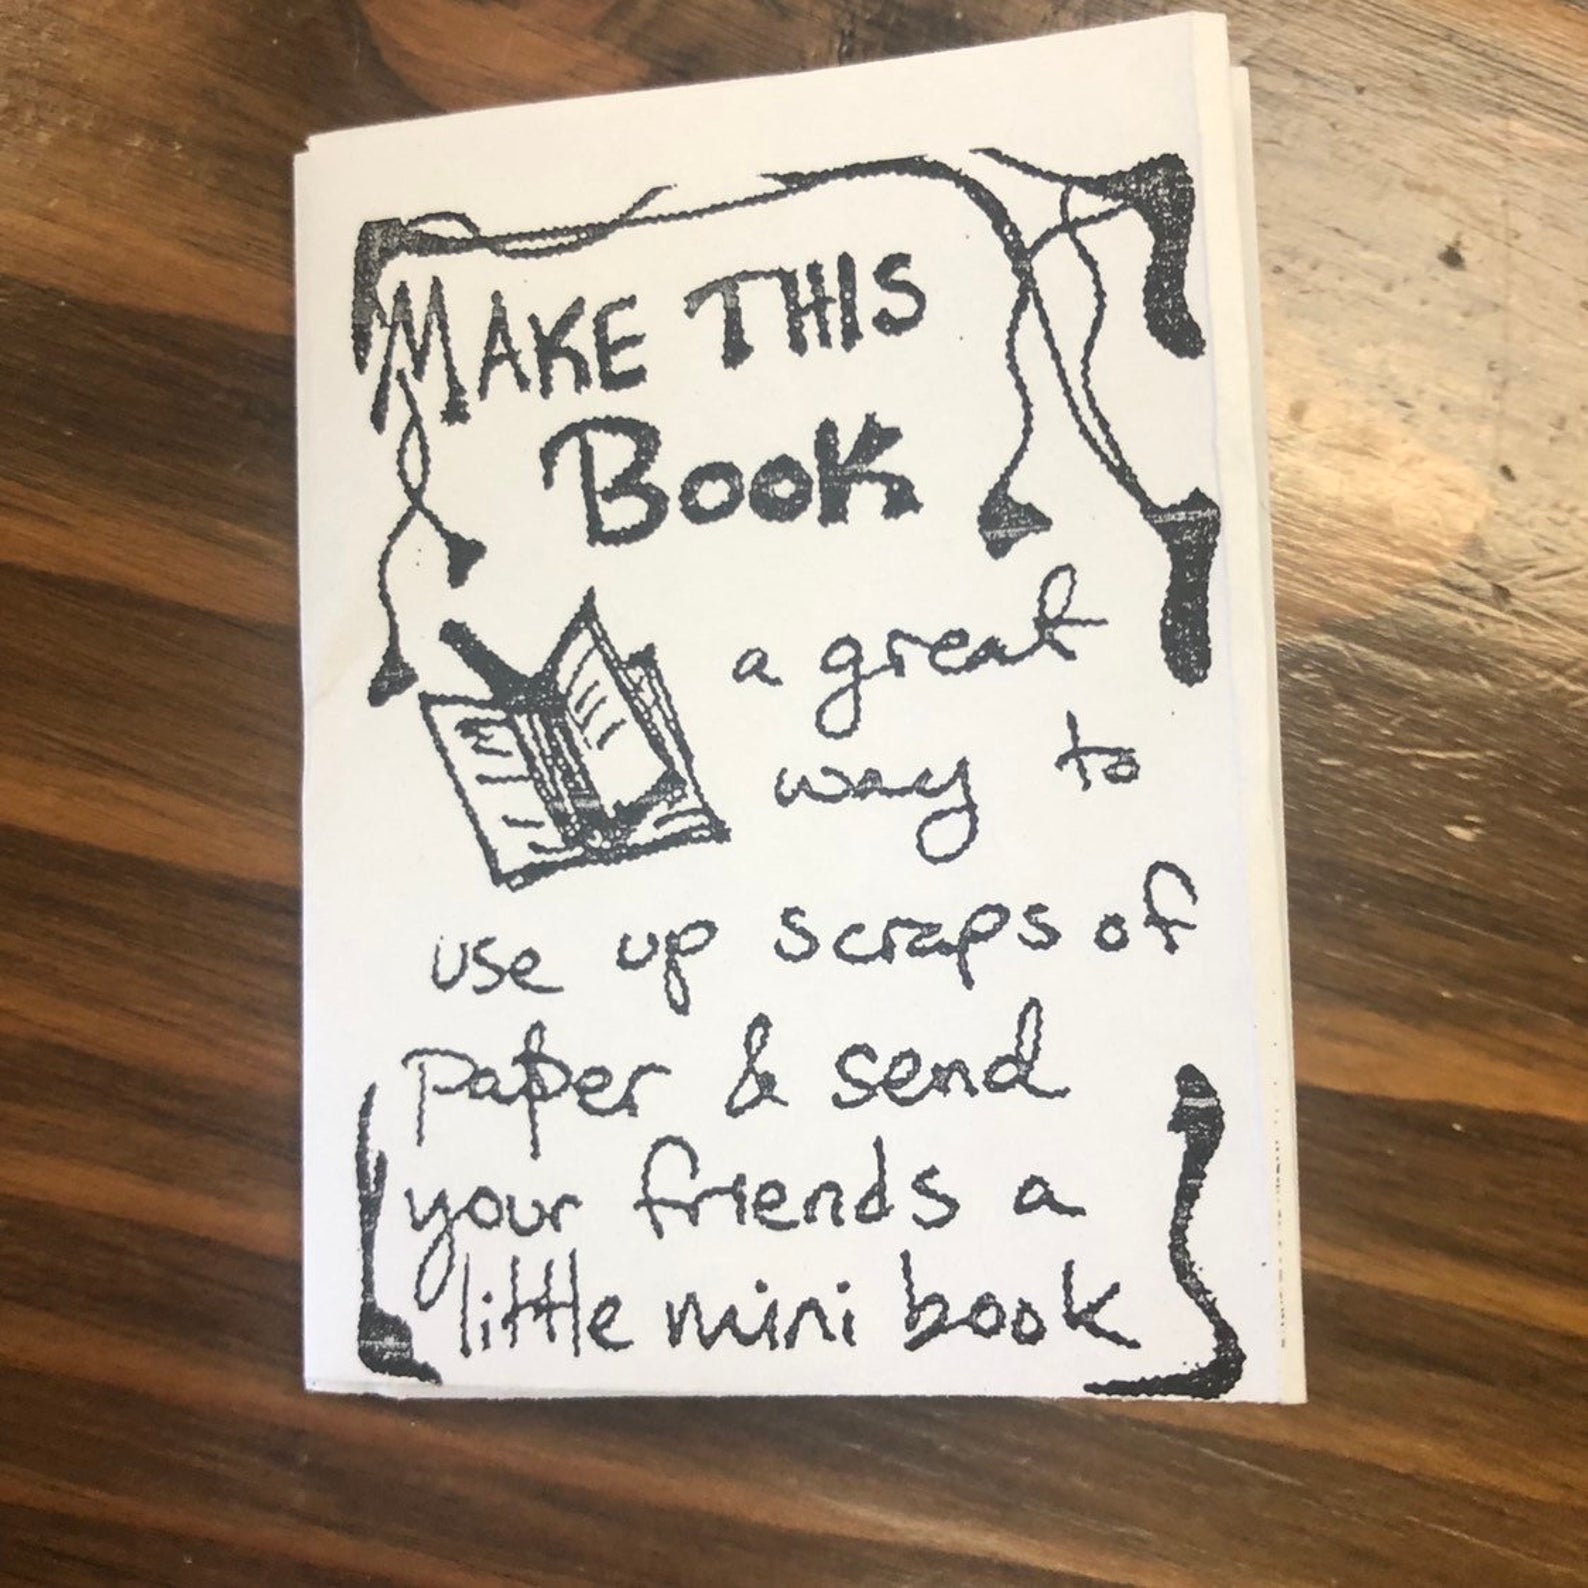 MAKE THIS
BOOK
a great
way to
use up scraps of
paper & send
your friends a
little mini book